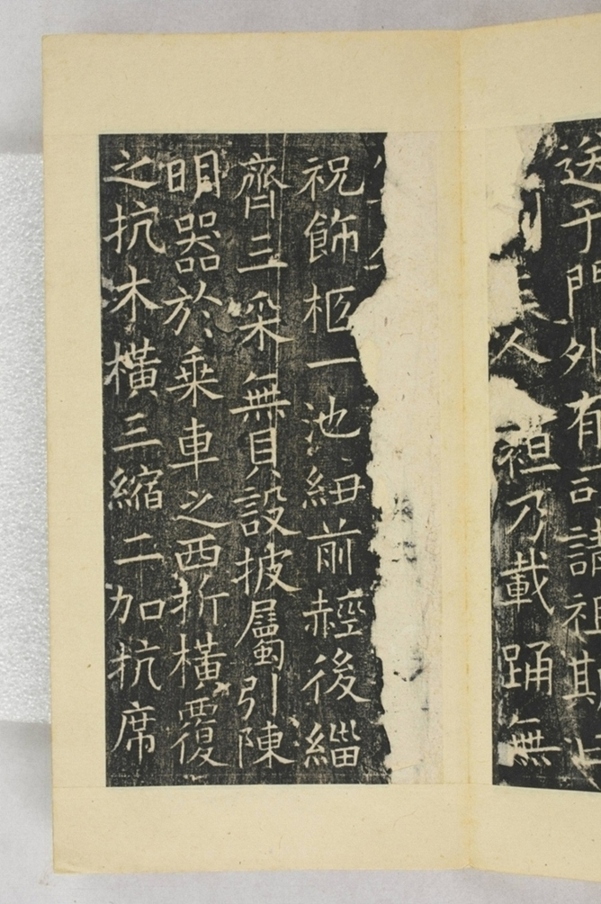 送于門外有司請祖期曰
人袒乃載踊無
祝飾柩一池紐前䞓後緇
齊三采無貝設披屬引陳
明器於乘車之西折橫覆
之抗木橫三縮二加抗席